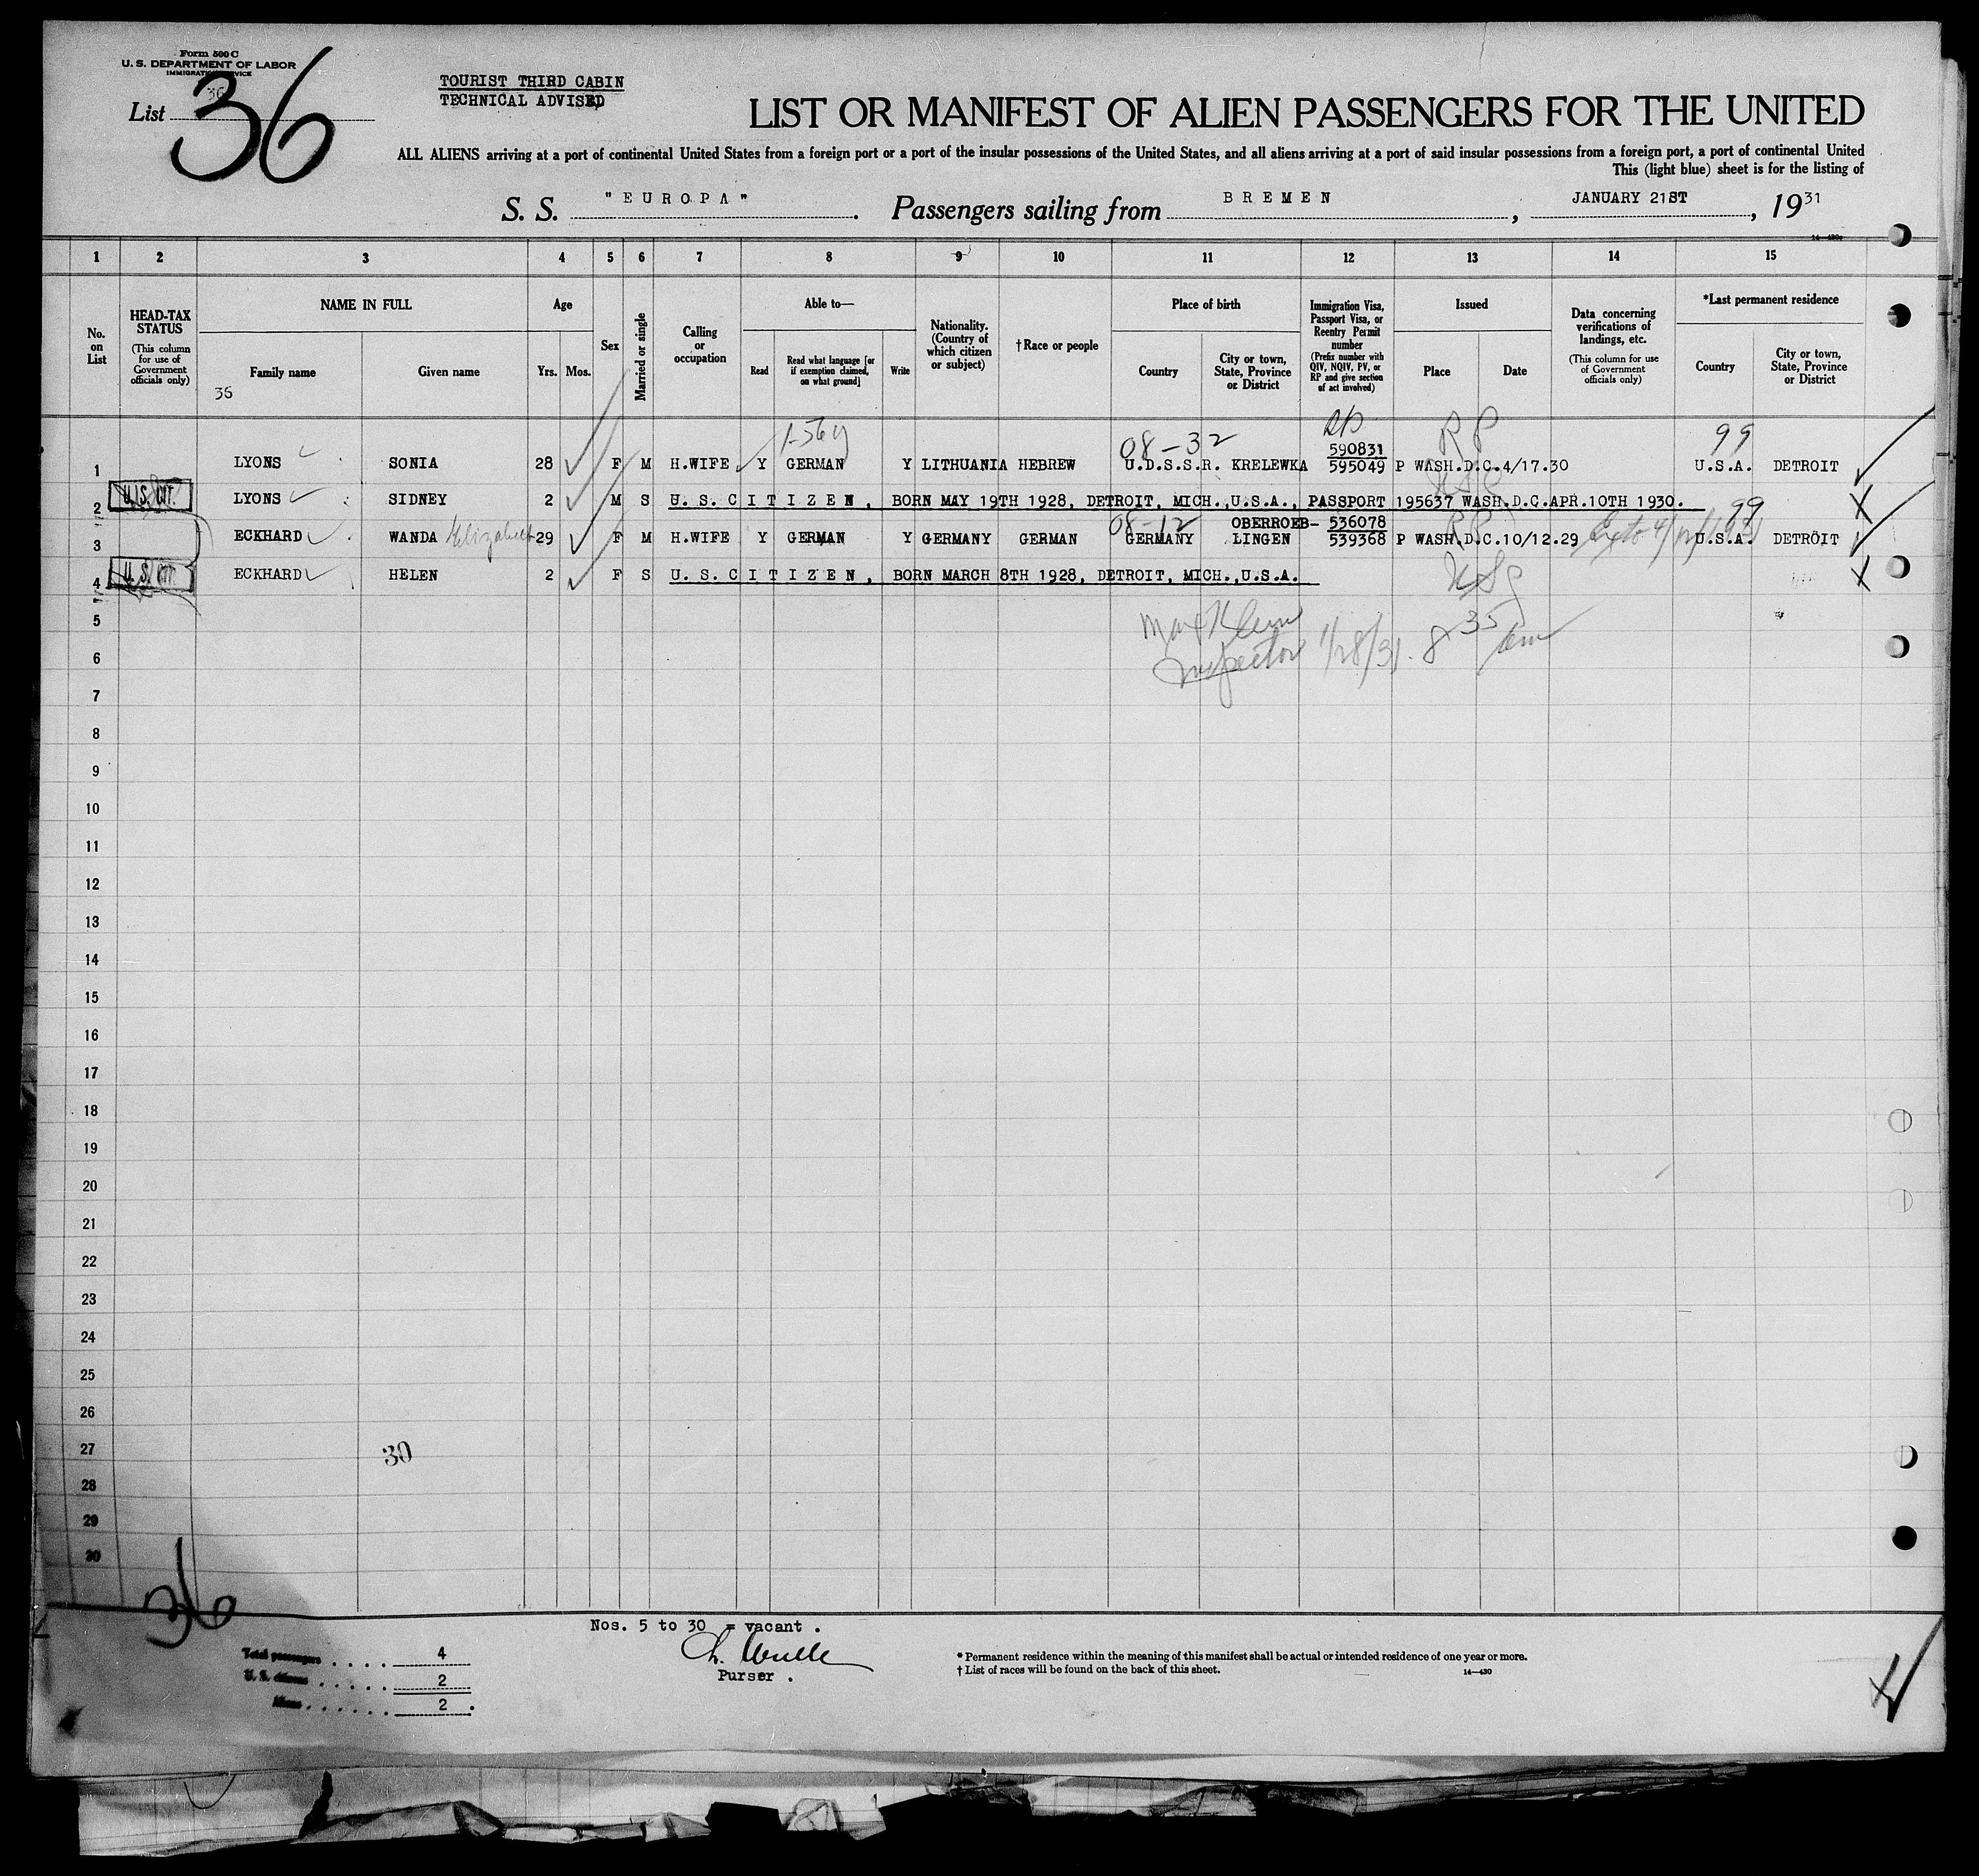 Form 500 C
U. S. DEPARTMENT OF LABOR
IMMIGRATION SERVICE
List 36
36
TOURIST THIRD CABIN
TECHNICAL ADVISED
LIST OR MANIFEST OF ALIEN PASSENGERS FOR THE UNITED
ALL ALIENS arriving at a port of continental United States from a foreign port or a port of the insular possessions of the United States, and all aliens arriving at a port of said insular possessions from a foreign port, a port of continental United
This (light blue) sheet is for the listing of
S. S. "EUROPA". Passengers sailing from BREMEN, JANUARY 21ST, 1931
14—430c
1 2 3 4 5 6 7 8 9 10 11 12 13 14 15
No. on List
HEAD-TAX STATUS
(This column for use of Government officials only)
NAME IN FULL
Family name
Given name
36
Age
Yrs. Mos.
Sex
Married or single
Calling or occupation
Able to—
Read
Read what language [or if exemption claimed, on what ground]
Write
Nationality. (Country of which citizen or subject)
†Race or people
Place of birth
Country
City or town, State, Province or District
Immigration Visa, Passport Visa, or Reentry Permit number
(Prefix number with QIV, NQIV, PV, or RP and give section of act involved)
Issued
Place
Date
Data concerning verifications of landings, etc.
(This column for use of Government officials only)
*Last permanent residence
Country
City or town, State, Province or District
08-32 RP RP 99
590831
1 LYONS SONIA 28 F M H.WIFE Y GERMAN Y LITHUANIA HEBREW U.D.S.S.R. KRELEWKA 595049 P WASH.D.C.4/17.30 U.S.A. DETROIT
2 U.S. CIT. LYONS SIDNEY 2 M S U.S.CITIZEN, BORN MAY 19TH 1928, DETROIT, MICH.,U.S.A., PASSPORT 195637 WASH.D.C.APR.10TH 1930.
08-12 OBERROEB- 536078 RP 99
3 ECKHARD WANDA Elizabeth 29 F M H.WIFE Y GERMAN Y GERMANY GERMAN GERMANY LINGEN 539368 P WASH.D.C.10/12.29 U.S.A. DETROIT
4 U.S. CIT. ECKHARD HELEN 2 F S U.S.CITIZEN, BORN MARCH 8TH 1928, DETROIT, MICH.,U.S.A. USC
5
Inspector 1/28/31. 8 35 am
6
7
8
9
10
11
12
13
14
15
16
17
18
19
20
21
22
23
24
25
26
27 30
28
29
30
36
Nos. 5 to 30 = vacant .
Purser .
Total passengers . . . . 4
U. S. citizens . . . . . 2
Aliens . . . . . . 2 .
* Permanent residence within the meaning of this manifest shall be actual or intended residence of one year or more.
† List of races will be found on the back of this sheet.
14—430